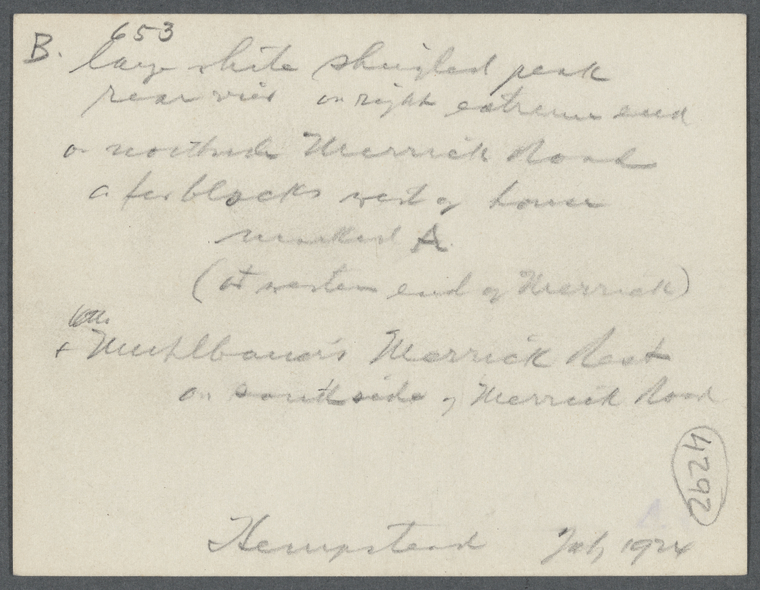 653
B. large white shingled peak
rear view on right extreme end
on northside Merrick Road
a few blocks west of house
marked A
(at western end of Merrick)
Wm.
+ Muhlbauer's Merrick Rest
on south side of Merrick Road
4292
Hempstead July 1924